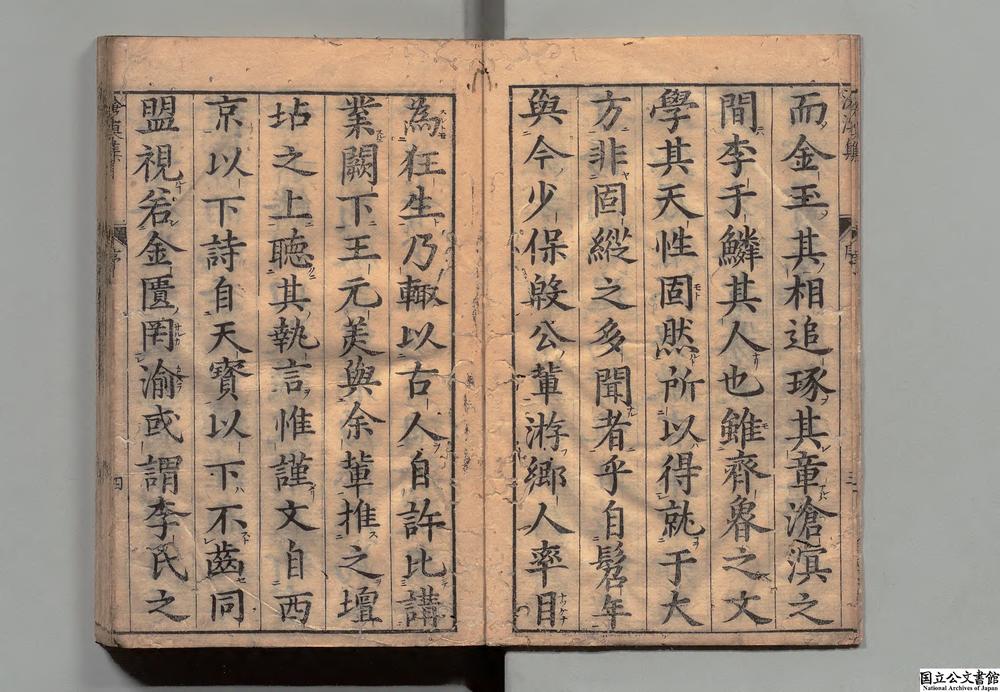 而金玉其相追琢其章滄溟之
間李于鱗其人也雖齊魯之文
學其天性固然所以得就于大
方非固縱之多聞者乎自髫年
與今少保殷公輩游鄉人率目
為狂生乃輙以古人自許比講
業闕下王元美與余輩推之壇
坫之上聽其執言惟謹文自西
京以下詩自天寶以下不齒同
盟視若金匱罔渝或謂李氏之
滄溟集
序
三
四
国立公文書館
National Archives of Japan